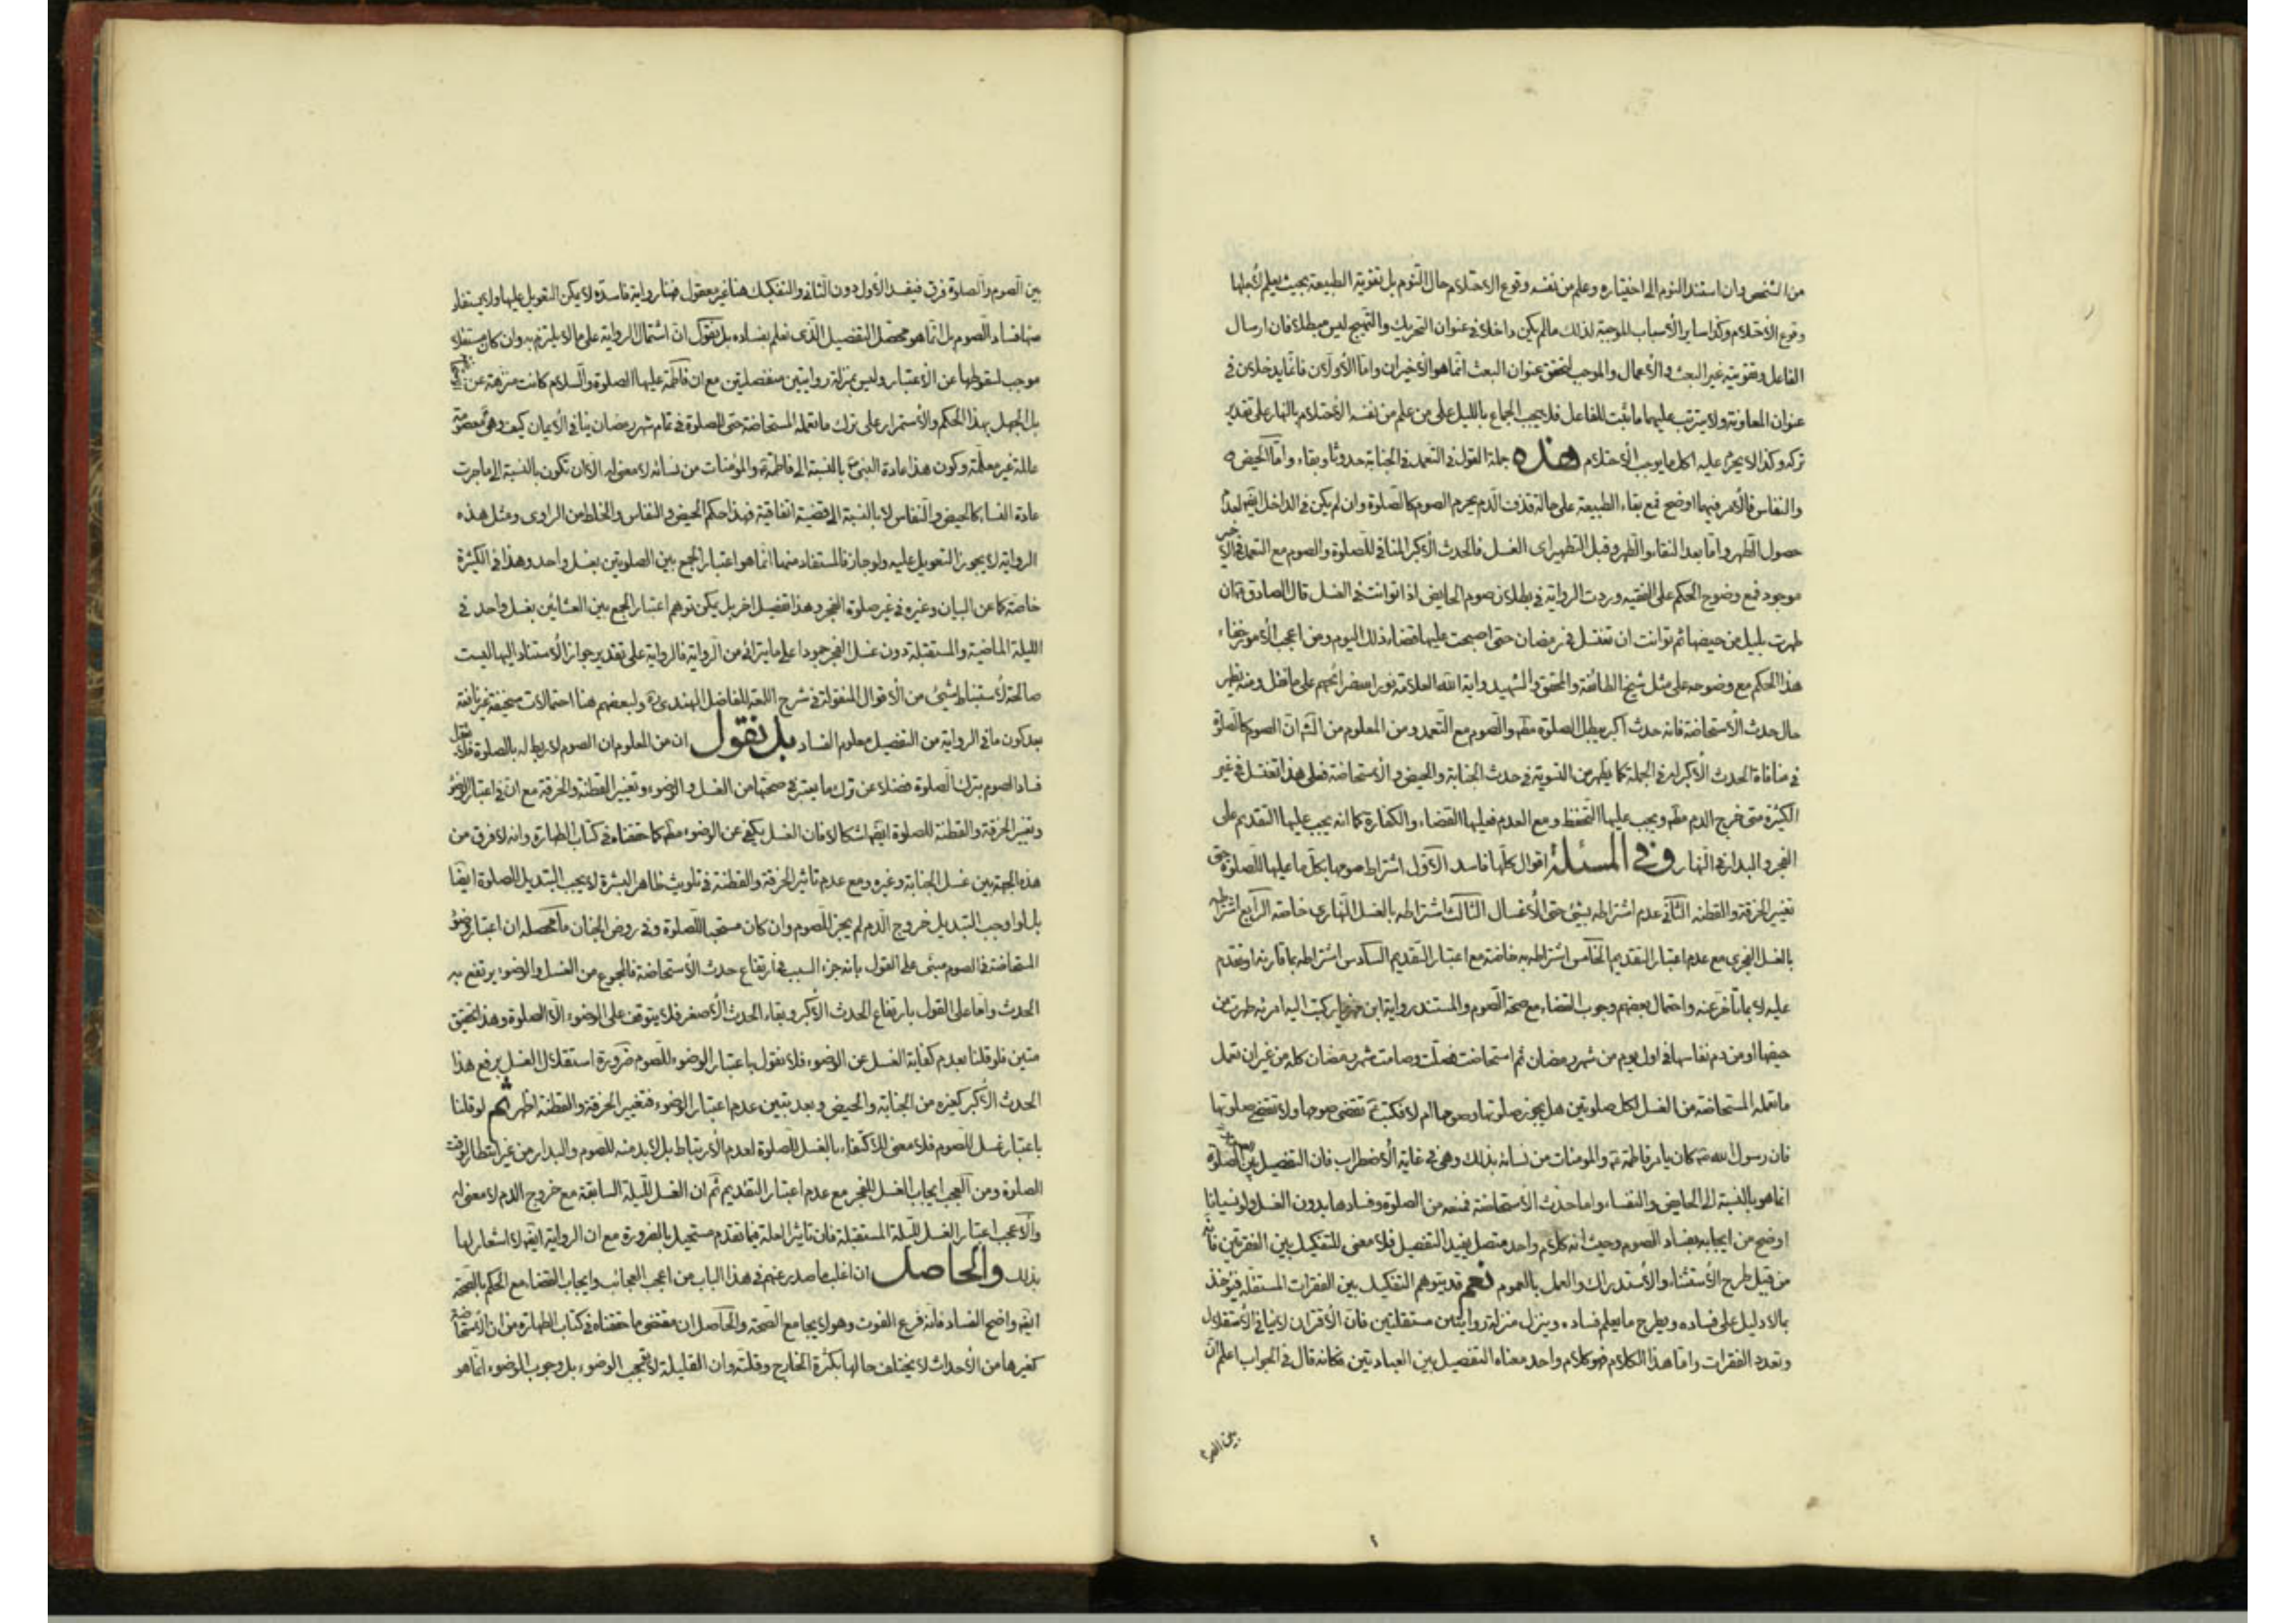 من الشخص وان استند النوم الى اختياره وعلم من نفسه وقوع الاحتلام حال النوم بل تقوية الطبيعة بحيث يعلم لأجلها
وقوع الاحتلام وكذا ساير الأسباب الموجبة لذلك مالم يكن داخلا فى عنوان التحريك والتهييج ليس مبطلا فان ارسال
الفاعل وتقويته غير البعث والأعمال والموجب لتحقق عنوان البعث انما هو الأخيران واما الأولان فانما يدخلان فى
عنوان المعاونة ولا يترتب عليهما ما ثبت للفاعل فلا يجب الجماع بالليل على من علم من نفسه الأحتلام بالنهار على تقدير
تركه وكذا لا يحرم عليه اكل ما يوجب الأحتلام هذه جملة القول فى التعمد فى الجنابة حدوثا وبقاء واما الحيض
والنفاس فالأمر فيهما اوضح فمع بقاء الطبيعة على حالة قذف الدم يحرم الصوم كالصلوة وان لم يكن فى الداخل ايضا لعدم
حصول الطهر واما بعد النقاء والطهر وقبل التطهير اى الغسل فالحدث الأكبر المنافى للصلوة والصوم مع التعمد فى الأخير
موجود فمع وضوح الحكم على الفقيه وردت الرواية فى بطلان صوم الحايض اذا توانت فى الغسل قال الصادق ان
طهرت بليل من حيضها ثم توانت ان تغتسل فى رمضان حتى اصبحت عليها قضاء ذلك اليوم ومن اعجب الأمور خفاء
هذا الحكم مع وضوحه على مثل شيخ الطائفة والمحقق والشهيد واية الله العلامة نور الله ضرائحهم على ما نقل ومنه يظهر
حال حدث الأستحاضة فانه حدث اكبر يبطل الصلوة مطلقا والصوم مع التعمد ومن المعلوم من الشرع ان الصوم كالصلوة
فى منافاة الحدث الأكبر له فى الجملة كما يظهر من التسوية فى حدث الجنابة والحيض والأستحاضة فعلى هذا تغتسل فى غير
الكثيرة متى خرج الدم مطلقا ويجب عليها التحفظ ومع العدم فعليها القضاء والكفارة كما انه يجب عليها التقديم على
الفجر والبدار فى النهار وفى المسئلة اقوال كلها فاسدة الأول اشتراط صومها بكل ما عليها للصلوة حتى
تغيير الخرقة والقطنة الثانى عدم اشتراطه بشئ حتى الأغسال الثالث اشتراطه بالغسل النهارى خاصة الرابع اشتراطه
بالغسل الفجرى مع عدم اعتبار التقديم الخامس اشتراطه به خاصة مع اعتبار التقديم السادس اشتراطه بما قارنه او تقدم
عليه لا بما تأخر عنه واحتمال بعضهم وجوب القضاء مع صحة الصوم والمستند رواية ابن مهزيار كتبت اليه امرئة طهرت من
حيضها او من دم نفاسها فى اول يوم من شهر رمضان ثم استحاضت فصلت وصامت شهر رمضان كله من غير ان تعمل
ما تعمله المستحاضة من الغسل لكل صلوتين هل يجوز صلوتها وصومها ام لا فكتب تقضى صومها ولا تقضى صلوتها
فان رسول الله كان يامر فاطمة والمؤمنات من نسائه بذلك وهى فى غاية الأضطراب فان التفصيل بين الصلوة
انما هو بالنسبة الى الحايض والنفساء واما حدث الأستحاضة فمنعه من الصلوة وفسادها بدون الغسل ولو نسيانا
اوضح من ايجابه فساد الصوم وحيث انه كلام واحد متصل يفيد التفصيل فلا معنى للتفكيك بين الفقرتين فانه
من قبيل طرح الأستثناء والأستدراك والعمل بالعموم نعم قد يتوهم التفكيك بين الفقرات المستقلة فيؤخذ
بالا دليل على فساده ويطرح ما يعلم فساده وينزل منزلة روايتين مستقلتين فان الأقتران لا ينافى الأستقلال
وتعدد الفقرات واما هذا الكلام فهو كلام واحد معناه التفصيل بين العبادتين فكانه قال فى الجواب اعلم ان
بين الصوم
بين الصوم والصلوة فرق فيفسد الأول دون الثانى والتفكيك هنا غير معقول فهنا رواية فاسدة لا يمكن التعويل عليها ولا يستفاد
منها فساد الصوم بل انما هو محصل التفصيل الذى نعلم بفساده بل نقول ان اشتمال الرواية على ما لا يلتزم به وان كان مستقلا
موجب لسقوطها عن الأعتبار وليس بمنزلة روايتين منفصلتين مع ان فاطمة عليها الصلوة والسلام كانت منزهة عن
بل الجهل بهذا الحكم والأستمرار على ترك ما تعمله المستحاضة حتى للصلوة فى تمام شهر رمضان ينافى الأيمان كيف وهى معصومة
عالمة غير معلمة وكون هذا عادة النبى بالنسبة الى فاطمة والمؤمنات من نسائه لا معنى له الا ان تكون بالنسبة الى ما جرت
عادة النساء كالحيض والنفاس لا بالنسبة الى قضية اتفاقية فهذا حكم الحيض والنفاس والخلط من الراوى ومثل هذه
الرواية لا يجوز التعويل عليه ولو جاز فالمستفاد منها انما هو اعتبار الجمع بين الصلوتين بغسل واحد وهذا فى الكثيرة
خاصة كما عن البيان وغيره فى غير صلوة الفجر وهذا تفصيل اخر بل يمكن توهم اعتبار الجمع بين العشائين بغسل واحد فى
الليلة الماضية والمستقبلة دون غسل الفجر جمودا على ما يترائى من الرواية فالرواية على تقدير جواز الأستناد اليها ليست
صالحة لأستنباط شئ من الأقوال المنقولة فى شرح اللمعة للفاضل الهندى ره ولبعضهم هنا احتمالات سخيفة غير نافعة
بعد كون ما فى الرواية من التفصيل معلوم الفساد بل نقول ان من المعلوم ان الصوم لا ربط له بالصلوة فلا يعقل
فساد الصوم بترك الصلوة فضلا عن ترك ما يعتبر فى صحتها من الغسل والوضوء وتغيير القطنة والخرقة مع ان فى اعتبار الوضوء
وتغيير الخرقة والقطنة للصلوة ايضا اشكالا فان الغسل يكفى عن الوضوء مطلقا كما حققناه فى كتاب الطهارة وانه لا فرق من
هذه الجهة بين غسل الجنابة وغيره ومع عدم تاثير الخرقة والقطنة فى تلويث ظاهر البشرة لا يجب التبديل للصلوة ايضا
بل لو اوجب التبديل خروج الدم لم يجز للصوم وان كان مستحبا للصلوة وفى روض الجنان ما محصله ان اعتبار وضوء
المستحاضة فى الصوم مبنى على القول بانه جزء السبب فى ارتفاع حدث الأستحاضة فالمجموع من الغسل والوضوء يرتفع به
الحدث واما على القول بارتفاع الحدث الأكبر وبقاء الحدث الأصغر فلا يتوقف على الوضوء الا الصلوة وهذا تحقيق
متين فلو قلنا بعدم كفاية الغسل عن الوضوء فلا نقول باعتبار الوضوء للصوم ضرورة استقلال الغسل برفع هذا
الحدث الأكبر كغيره من الجنابة والحيض وبعد تبين عدم اعتبار الوضوء فتغيير الخرقة والقطنة اظهر ثم لو قلنا
باعتبار غسل للصوم فلا معنى للأكتفاء بالغسل للصلوة لعدم الأرتباط بل لا بد منه للصوم والبدار من غير انتظار الوقت
الصلوة ومن العجب ايجاب الغسل للفجر مع عدم اعتبار التقديم ثم ان الغسل لليلة السابقة مع خروج الدم لا معنى له
والأعجب اعتبار الغسل لليلة المستقبلة فان تاثير العلة فيما تقدم مستحيل بالضرورة مع ان الرواية ايضا لا اشعار لها
بذلك والحاصل ان اغلب ما صدر عنهم فى هذا الباب من اعجب العجائب وايجاب القضاء مع الحكم بالصحة
ايضا واضح الفساد فانه فرع الفوت وهو لا يجامع الصحة والحاصل ان مقتضى ما حققناه فى كتاب الطهارة من ان الأستحاضة
كغيرها من الأحداث لا يختلف حالها بكثرة الخارج وقلته وان القليلة لا توجب الوضوء بل وجوب الوضوء انما هو